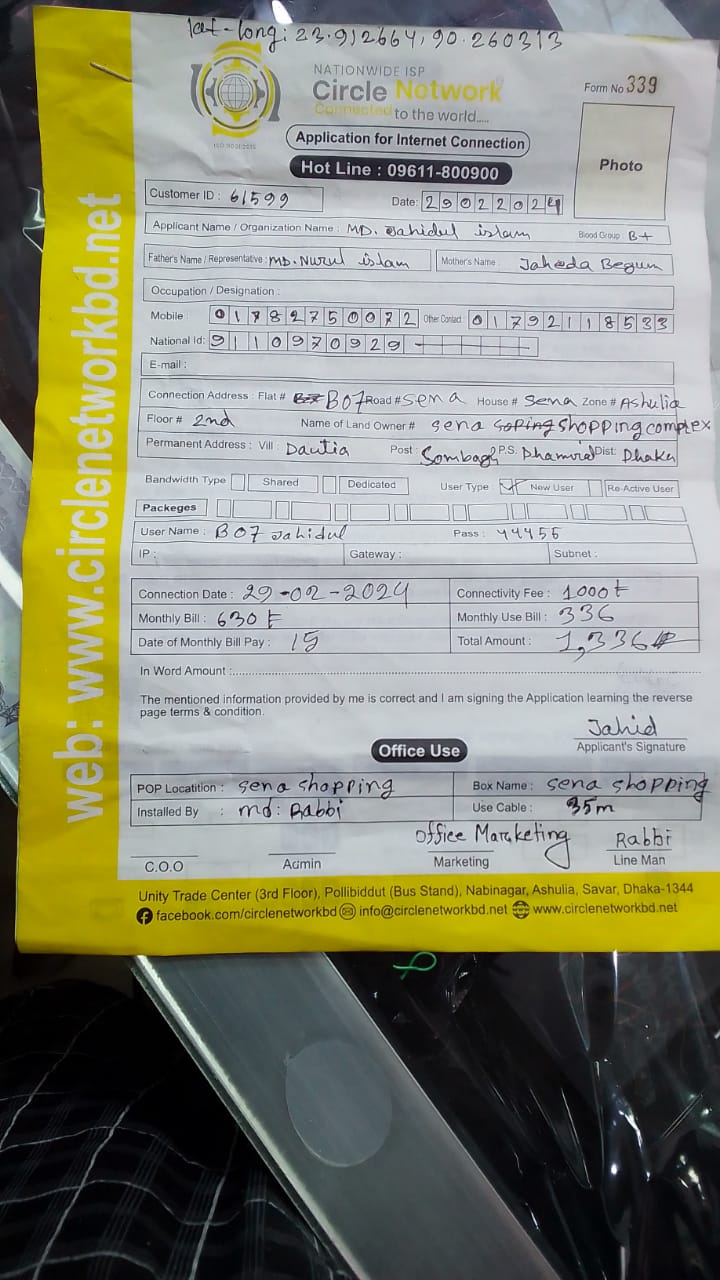 lat-long: 23.912664, 90.260313
NATIONWIDE ISP
Circle Network
Connected to the world.....
ISO 9001:2015
Form No 339
Application for Internet Connection
Photo
Hot Line : 09611-800900
Customer ID : 61599
Date: 29022024
Applicant Name / Organization Name : MD. Jahidul islam Blood Group : B+
Father's Name / Representative : MD. Nurul islam Mother's Name : Jaheda Begum
Occupation / Designation :
Mobile : 01782750072 Other Contact : 01792118533
National Id: 9110970929
E-mail :
Connection Address : Flat # B07 Road # Sena House # Sena Zone # Ashulia
Floor # 2nd Name of Land Owner # Sena shopping complex
Permanent Address : Vill : Dautia Post : Sombagh P.S. Dhamrai Dist: Dhaka
Bandwidth Type Shared Dedicated User Type New User Re-Active User
Packeges
User Name : B07 Jahidul Pass : 44456
IP : Gateway : Subnet :
Connection Date : 29-02-2024 Connectivity Fee : 1000 ৳
Monthly Bill : 630 ৳ Monthly Use Bill : 336
Date of Monthly Bill Pay : 15 Total Amount : 1,336
In Word Amount :
The mentioned information provided by me is correct and I am signing the Application learning the reverse
page terms & condition.
Jahid
Applicant's Signature
Office Use
POP Locatition : Sena shopping Box Name : Sena shopping
Installed By : md: Rabbi Use Cable : 35m
Office Marketing Rabbi
C.O.O Admin Marketing Line Man
Unity Trade Center (3rd Floor), Pollibiddut (Bus Stand), Nabinagar, Ashulia, Savar, Dhaka-1344
facebook.com/circlenetworkbd info@circlenetworkbd.net www.circlenetworkbd.net
web: www.circlenetworkbd.net